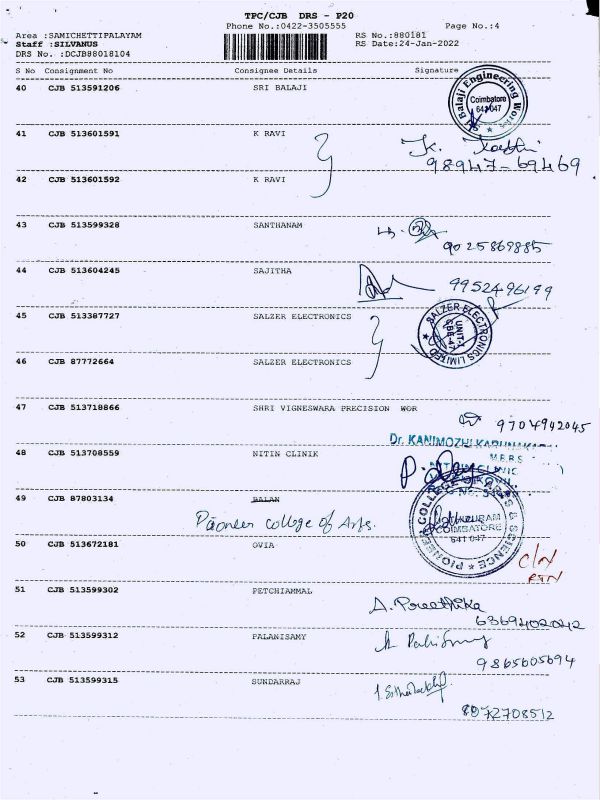 TPC/CJB DRS - P20
Phone No.:0422-3505555 Page No.:4
Area :SAMICHETTIPALAYAM RS No.:880181
Staff :SILVANUS RS Date:24-Jan-2022
DRS No. :DCJB88018104
S No Consignment No Consignee Details Signature
40 CJB 513591206 SRI BALAJI
Sri Balaji Engineering Works
Coimbatore
641 047
41 CJB 513601591 K RAVI
K.
98947-69469
42 CJB 513601592 K RAVI
43 CJB 513599328 SANTHANAM
9025869885
44 CJB 513604245 SAJITHA
9952496199
45 CJB 513387727 SALZER ELECTRONICS
SALZER ELECTRONICS LIMITED
UNIT-1
CBE-47
46 CJB 87772664 SALZER ELECTRONICS
47 CJB 513718866 SHRI VIGNESWARA PRECISION WOR
9704942045
Dr. KANIMOZHI
48 CJB 513708559 NITIN CLINIK
CLINIC
49 CJB 87803134 BALAN
Pioneer college of Arts.
PIONEER COLLEGE OF ARTS & SCIENCE
COIMBATORE
641 047
50 CJB 513672181 OVIA
C/N
RTN
51 CJB 513599302 PETCHIAMMAL
A. Preethika
6369402042
52 CJB 513599312 PALANISAMY
9865605694
53 CJB 513599315 SUNDARRAJ
8072708512